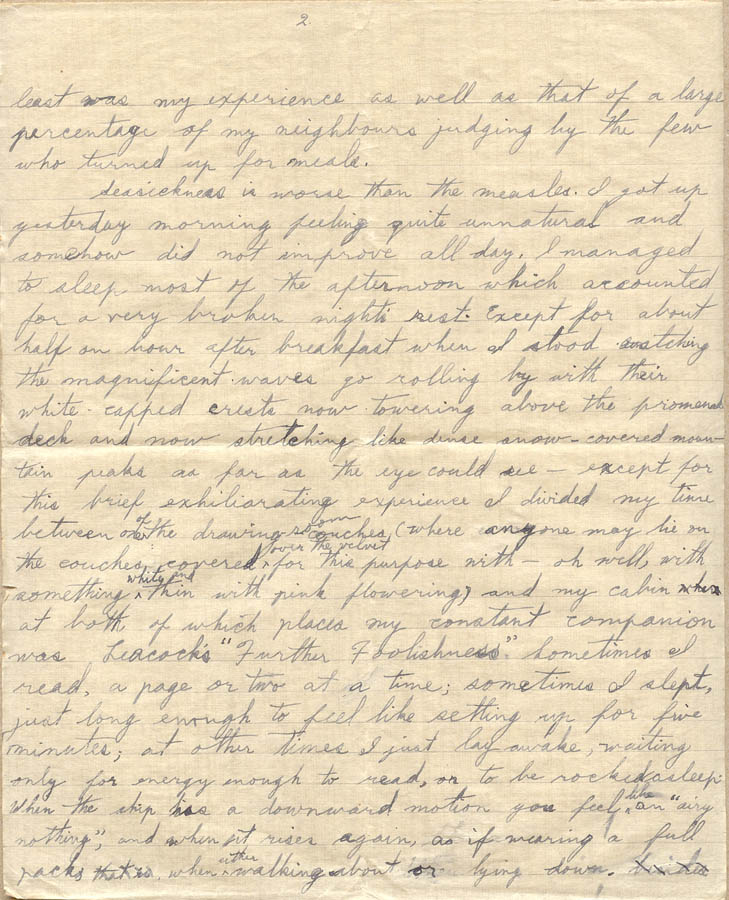 2.
least was my experience as well as that of a large
percentage of my neighbours judging by the few
who turned up for meals.
Seasickness is worse than the measles. I got up
yesterday morning feeling quite unnatural and
somehow did not improve all day. I managed
to sleep most of the afternoon which accounted
for a very broken night's rest. Except for about
half an hour after breakfast when I stood watching
the magnificent waves go rolling by with their
white-capped crests now towering above the promenade
deck and now stretching like dense snow-covered moun-
tain peaks as far as the eye could see – except for
this brief exhiliarating experience I divided my time
between one of the drawing room couches, (where anyone may lie on
the couches, covered over the velvet for this purpose with – oh well, with
something white and thin with pink flowering) and my cabin
at both of which places my constant companion
was Leacock's "Further Foolishness". Sometimes I
read, a page or two at a time; sometimes I slept,
just long enough to feel like setting up for five
minutes; at other times I just lay awake, waiting
only for energy enough to read, or to be rocked asleep.
When the ship has a downward motion you feel like an "airy
nothing", and when it rises again, as if wearing a full
pack, that is, when either walking about or lying down.